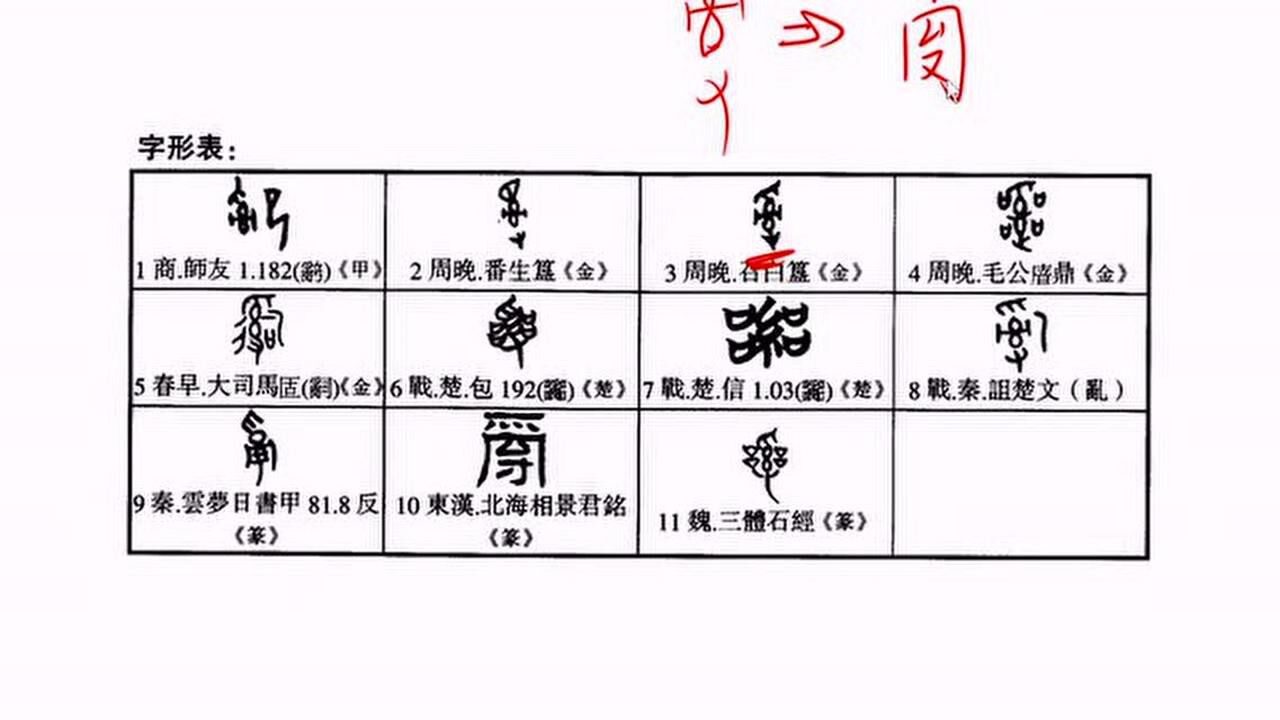 字形表：
1 商.師友 1.182(䛐)《甲》
2 周晚.番生簋《金》
3 周晚.召伯簋《金》
4 周晚.毛公㫍鼎《金》
5 春早.大司馬匜(嗣)《金》
6 戰.楚.包 192
《楚》
7 戰.楚.信 1.03
《楚》
8 戰.秦.詛楚文（亂）
9 秦.雲夢日書甲 81.8 反
《篆》
10 東漢.北海相景君銘
《篆》
11 魏.三體石經《篆》